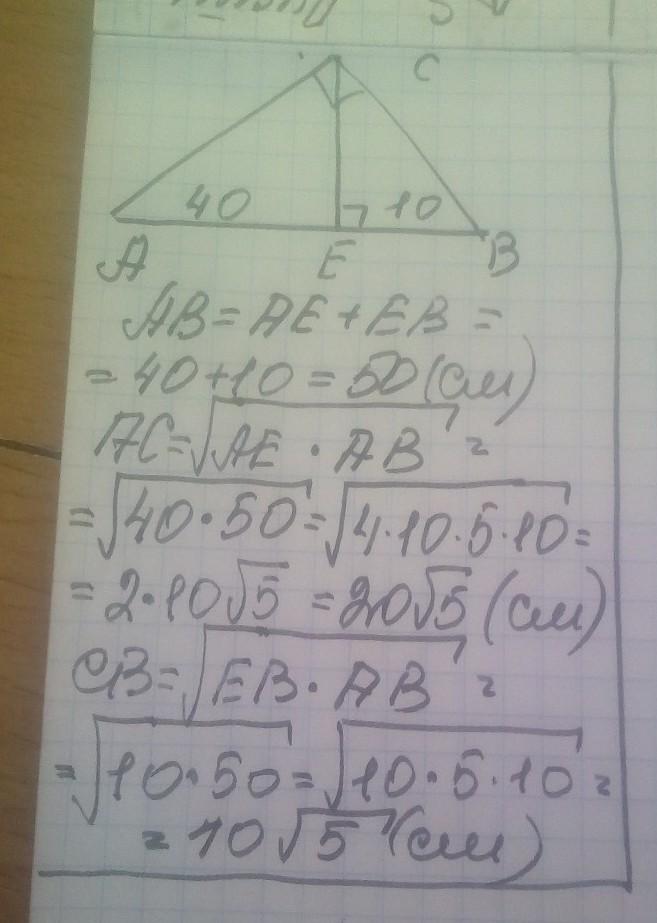 C
40 10
A E B
AB = AE + EB =
= 40 + 10 = 50 (см)
AC = √AE · AB =
= √40 · 50 = √4 · 10 · 5 · 10 =
= 2 · 10√5 = 20√5 (см)
CB = √EB · AB =
= √10 · 50 = √10 · 5 · 10 =
= 10√5 (см)